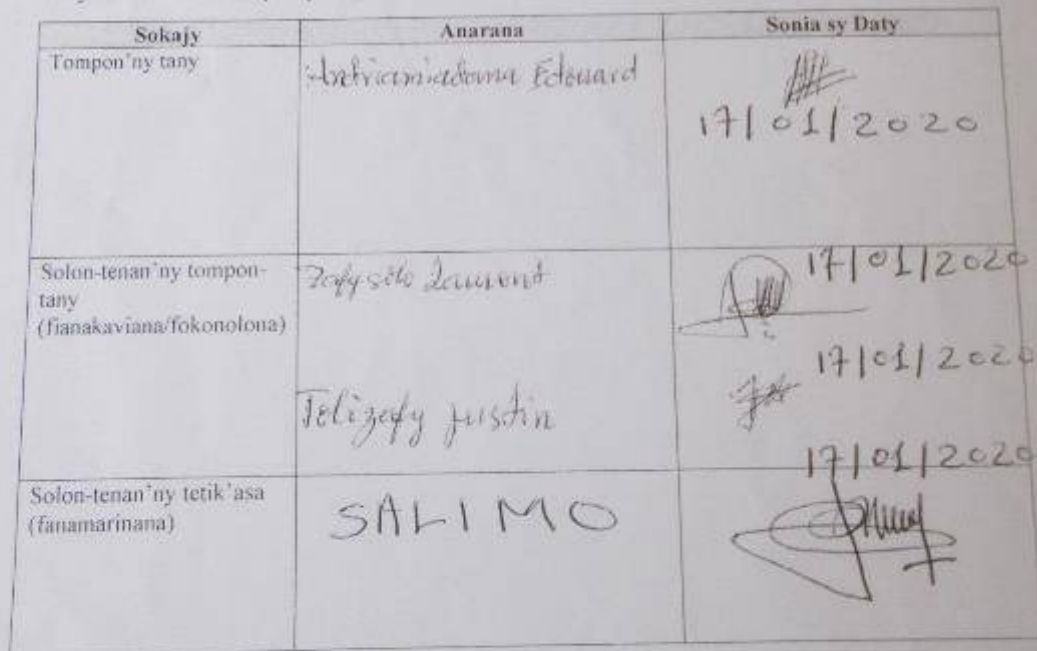 Sokajy Anarana Sonia sy Daty
Tompon'ny tany Edouard
17/01/2020
Solon-tenan'ny tompon-
tany
(fianakaviana/fokonolona)
17/01/2020
Telizafy Justin 17/01/2020
17/01/2020
Solon-tenan'ny tetik'asa
(fanamarinana)
SALIMO